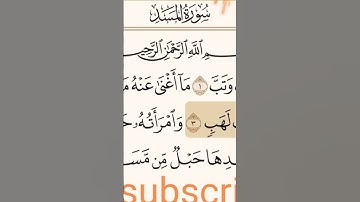 سُورَةُ المَسَدِ
ـمِ اللَّهِ الرَّحْمَٰنِ الرَّحِيـ
وَتَبَّ ۝١ مَآ أَغْنَىٰ عَنْهُ مَـ
لَهَبٍ ۝٣ وَٱمْرَأَتُهُۥ حَـ
ـدِهَا حَبْلٌ مِّن مَّسَـ
subscri